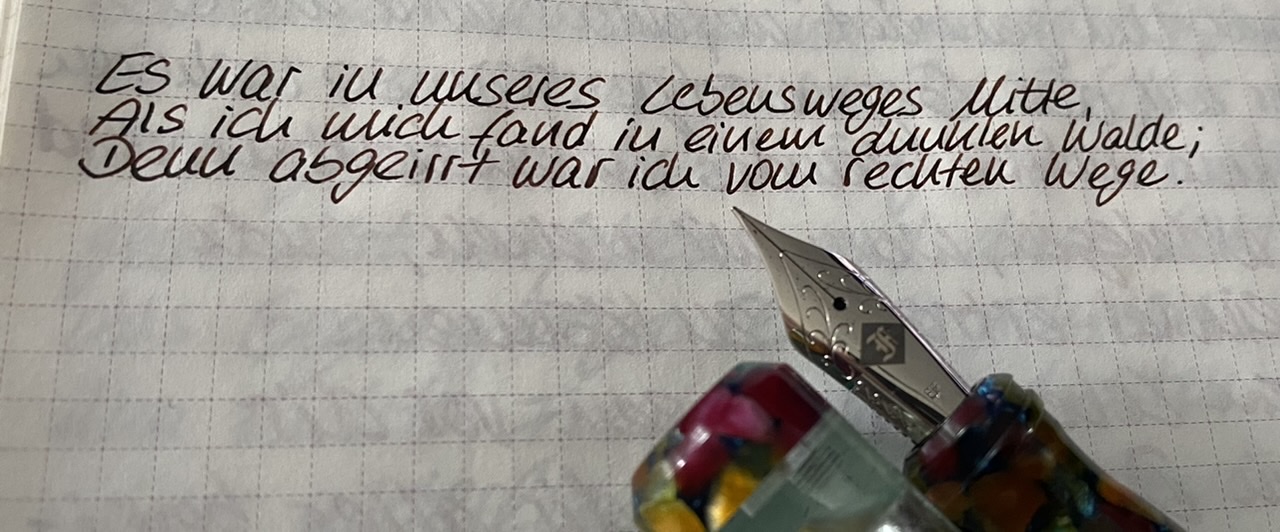 Es war in unseres Lebensweges Mitte,
Als ich mich fand in einem dunklen Walde;
Denn abgeirrt war ich vom rechten Wege.